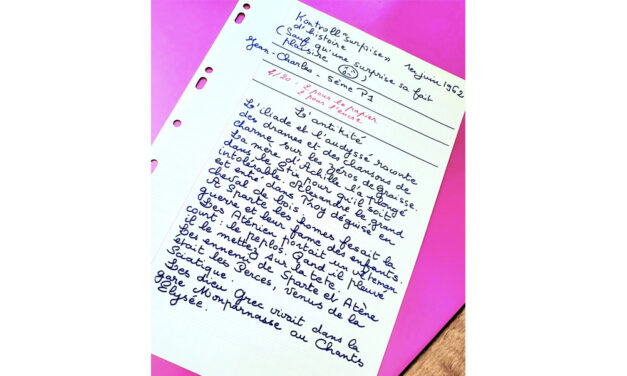 Kontroll "surprise"
d'histoire
1er juin 1962
(Sauf qu'une surprise sa fait
plaisire )
Jean-Charles - 5ème P1
4/20 : 2 pour le papier
2 pour l'encre
L'antikité
L'iliade et l'audyssé raconte
des drames et des chansons de
charme sur les héros de graisse.
La mère d'Achille l'a plongé
dans le Stix pour qu'il soit
intolérable. Alexandre le grand
est entré dans Troy déguisé en
cheval de bois.
A Sparte les homes fesait la
guerre et leur fame des enfants.
Les Aténien portait un vêtemen
court : le peplos. Quand il pleuvé
il le mettez sur la tete.
Les ennemit de Sparte et Atène
était les Perces, venus de la
Sciatique.
Les dieu Grec vivait dans la
gare Monparnasse au Chants
Elysée.